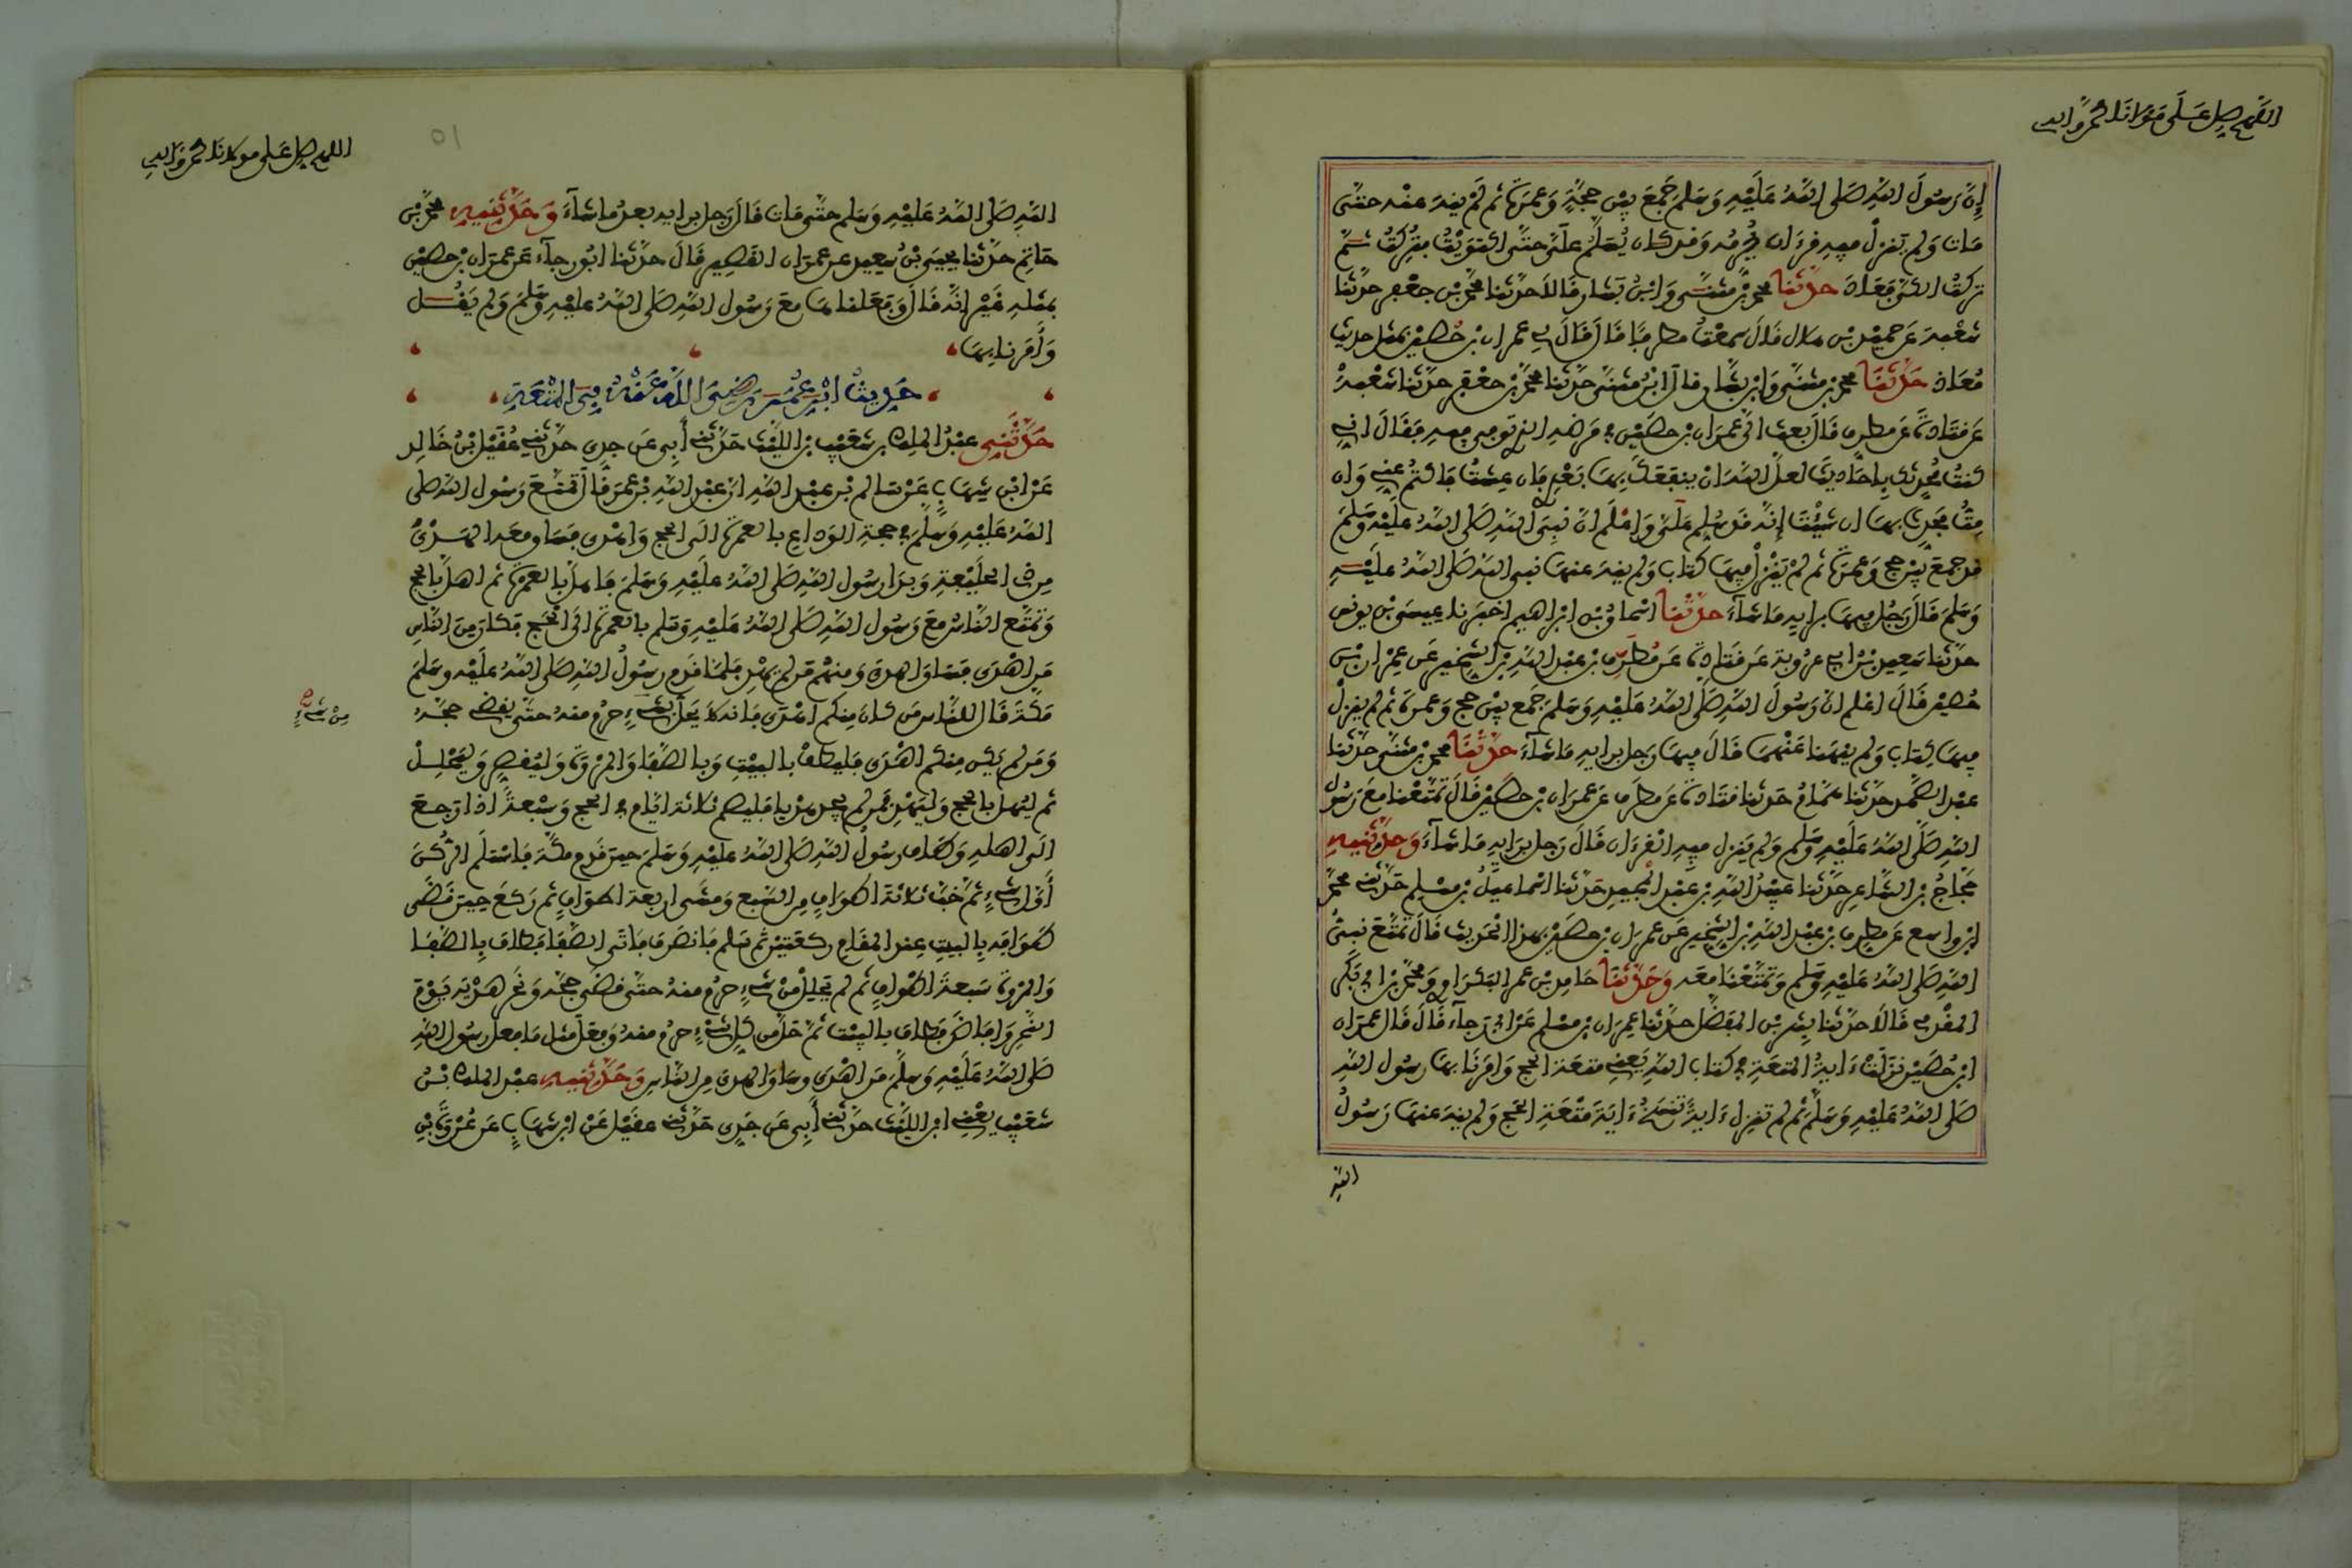 اللهم صل على مولانا محمد وآله
إن رسول الله صلى الله عليه وسلم جمع بين حجة وعمرة ثم لم ينه عنه حتى
مات ولم ينزل فيه قرءان يحرمه وقد كان يسلم علي حتى اكتويت فتركت ثم
تركت الكي فعاد حدثنا محمد بن مثنى وابن بشار قالا حدثنا محمد بن جعفر حدثنا
شعبة عن حميد بن هلال قال سمعت مطرفا قال قال لي عمران بن حصين بمثل حديث
معاذ حدثنا محمد بن مثنى وابن بشار قال ابن مثنى حدثنا محمد بن جعفر حدثنا شعبة
عن قتادة عن مطرف قال بعث الي عمران بن حصين في مرضه الذي توفي فيه فقال اني
كنت محدثك باحاديث لعل الله ان ينفعك بها بعدي فان عشت فاكتم عني وان
مت فحدث بها ان شئت إنه قد سلم علي واعلم ان نبي الله صلى الله عليه وسلم
قد جمع بين حج وعمرة ثم لم ينزل فيها كتاب ولم ينه عنها نبي الله صلى الله عليه
وسلم قال رجل فيها برايه ما شاء حدثنا اسحاق بن ابراهيم اخبرنا عيسى بن يونس
حدثنا سعيد بن ابي عروبة عن قتادة عن مطرف بن عبد الله بن الشخير عن عمران بن
حصين قال اعلم ان رسول الله صلى الله عليه وسلم جمع بين حج وعمرة ثم لم ينزل
فيها كتاب ولم ينهنا عنهما قال فيها رجل برايه ما شاء حدثنا محمد بن مثنى حدثنا
عبد الصمد حدثنا همام حدثنا قتادة عن مطرف عن عمران بن حصين قال تمتعنا مع رسول
الله صلى الله عليه وسلم ولم ينزل فيه القرءان قال رجل برايه ما شاء وحدثنيه
حجاج بن الشاعر حدثنا عبيد الله بن عبد المجيد حدثنا اسماعيل بن مسلم حدثني محمد
ابن واسع عن مطرف بن عبد الله بن الشخير عن عمران بن حصين بهذا الحديث قال تمتع نبي
الله صلى الله عليه وسلم وتمتعنا معه وحدثنا حامد بن عمر البكراوي ومحمد بن ابي بكر
المقدمي قالا حدثنا بشر بن المفضل حدثنا عمران بن مسلم عن ابي رجاء قال قال عمران
ابن حصين نزلت ءاية المتعة في كتاب الله يعني متعة الحج وامرنا بها رسول الله
صلى الله عليه وسلم ثم لم تنزل ءاية تنسخ ءاية متعة الحج ولم ينه عنها رسول
الله
اللهم صل على مولانا محمد وآله
الله صلى الله عليه وسلم حتى مات قال رجل برايه بعد ما شاء وحدثنيه محمد بن
حاتم حدثنا يحيى بن سعيد عن عمران القصير قال حدثنا ابو رجاء عن عمران بن حصين
بمثله غير انه قال وفعلناها مع رسول الله صلى الله عليه وسلم ولم يقل
وأمرنا بها
حديث ابن عمر رضي الله عنه في المتعة
حدثني عبد الملك بن شعيب بن الليث حدثني أبي عن جدي حدثني عقيل بن خالد
عن ابن شهاب عن سالم بن عبد الله ان عبد الله بن عمر قال تمتع رسول الله صلى
الله عليه وسلم في حجة الوداع بالعمرة الى الحج واهدى فساق معه الهدي
من ذي الحليفة وبدا رسول الله صلى الله عليه وسلم فاهل بالعمرة ثم اهل بالحج
وتمتع الناس مع رسول الله صلى الله عليه وسلم بالعمرة الى الحج فكان من الناس
من اهدى فساق الهدي ومنهم من لم يهد فلما قدم رسول الله صلى الله عليه وسلم
مكة قال للناس من كان منكم اهدى فانه لا يحل بشيء حرم منه حتى يقضي حجه
من شيء
ومن لم يكن منكم اهدى فليطف بالبيت وبالصفا والمروة وليقصر وليحلل
ثم ليهل بالحج وليهد فمن لم يجد هديا فليصم ثلاثة ايام في الحج وسبعة اذا رجع
الى اهله وطاف رسول الله صلى الله عليه وسلم حين قدم مكة فاستلم الركن
أول شيء ثم خب ثلاثة اطواف من السبع ومشى اربعة اطواف ثم ركع حين قضى
طوافه بالبيت عند المقام ركعتين ثم سلم فانصرف فاتى الصفا فطاف بالصفا
والمروة سبعة اطواف ثم لم يحلل من شيء حرم منه حتى قضى حجه ونحر هديه يوم
النحر وافاض فطاف بالبيت ثم حل من كل شيء حرم منه وفعل مثل ما فعل رسول الله
صلى الله عليه وسلم من اهدى وساق الهدي من الناس وحدثنيه عبد الملك بن
شعيب يعني ابن الليث حدثني أبي عن جدي حدثني عقيل عن ابن شهاب عن عروة بن